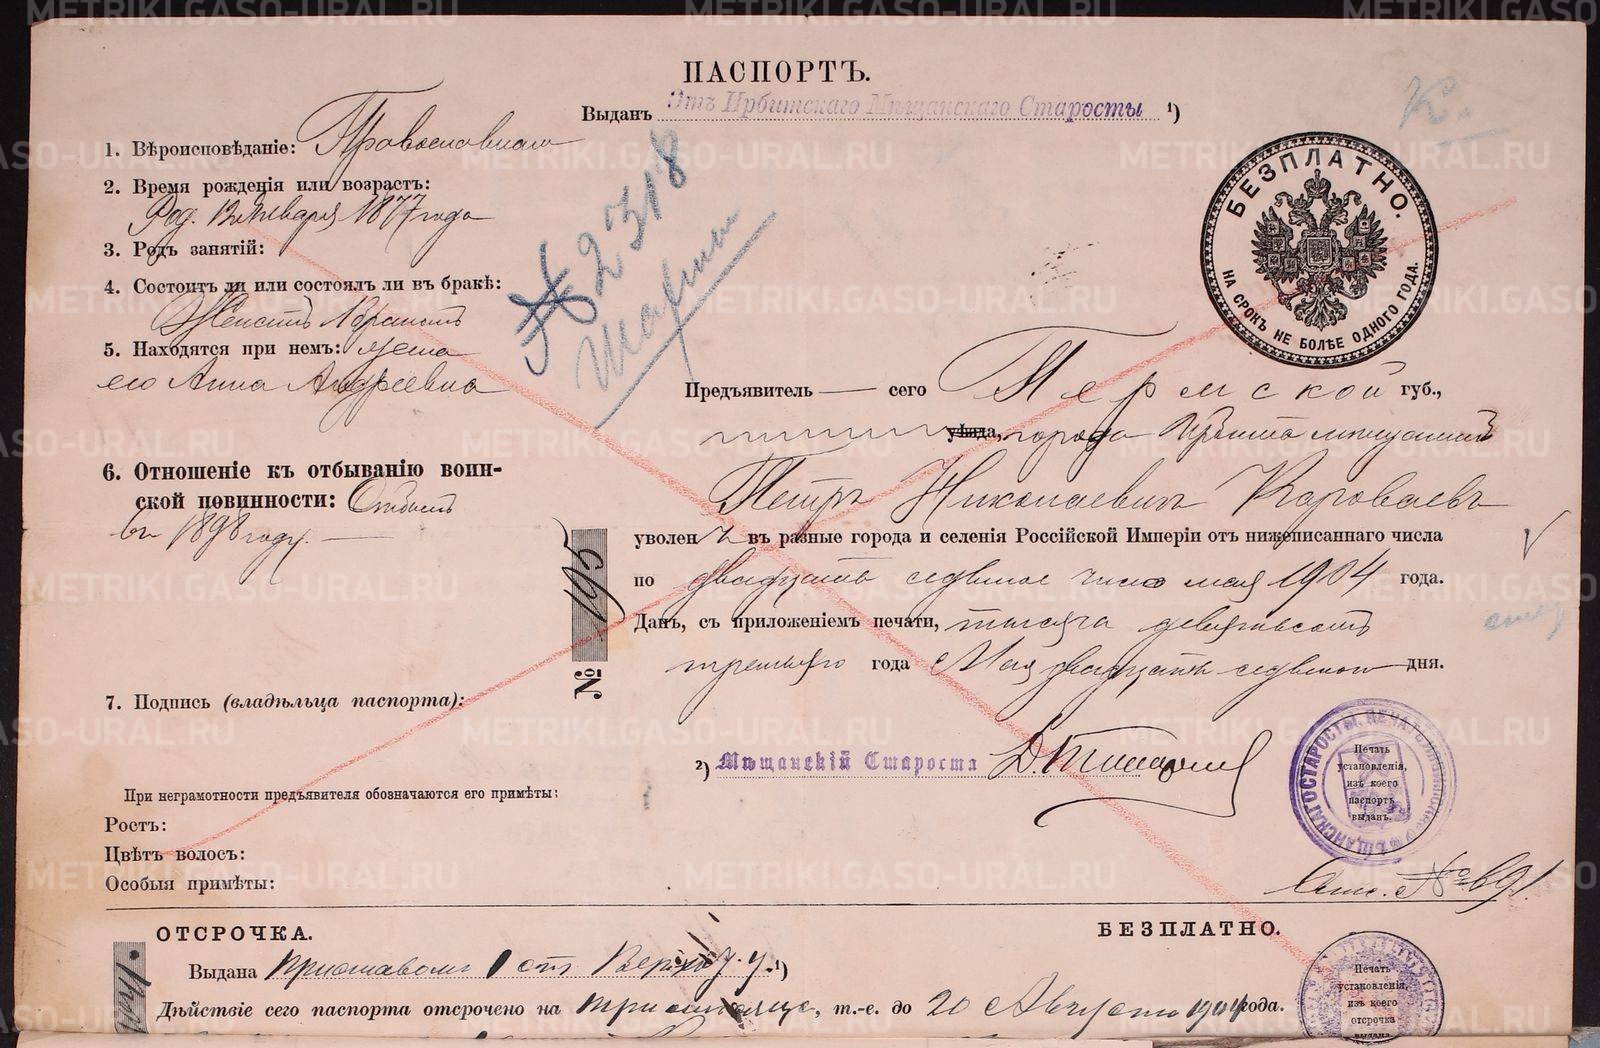 ПАСПОРТЪ.
Выданъ Отъ Ирбитскаго Мѣщанскаго Старосты ¹)
1. Вѣроисповѣданіе: Православнаго
2. Время рожденія или возрастъ:
Род. 12 Января 1877 года
3. Родъ занятій:
4. Состоитъ ли или состоялъ ли въ бракѣ:
Женатъ
5. Находятся при немъ: жена
его Анна Андреевна
6. Отношеніе къ отбыванію воин-
ской повинности: Отбылъ
въ 1898 году.
№ 195
7. Подпись (владѣльца паспорта):
При неграмотности предъявителя обозначаются его примѣты:
Ростъ:
Цвѣтъ волосъ:
Особыя примѣты:
№ 2318
К.
БЕЗПЛАТНО.
НА СРОКЪ НЕ БОЛѢЕ ОДНОГО ГОДА.
Предъявитель — сего Пермской губ.,
уѣзда, города Ирбита мѣщанинъ
Петръ Николаевичъ Короваевъ
уволенъ въ разные города и селенія Россійской Имперіи отъ нижеписаннаго числа
по двадцать седьмое число мая 1904 года.
Данъ, съ приложеніемъ печати, тысяча девятьсотъ
третьяго года Мая двадцать седьмого дня.
²) Мѣщанскій Староста
Печать
установленія,
изъ коего
паспортъ
выданъ.
№ 691
ОТСРОЧКА. БЕЗПЛАТНО.
Выдана Приставомъ 1 ст. Верхот. у. ¹)
Дѣйствіе сего паспорта отсрочено на три мѣсяца, т.-е. до 20 Августа 1904 года.
Печать
установленія,
изъ коего
отсрочка
выдана.
METRIKI.GASO-URAL.RU